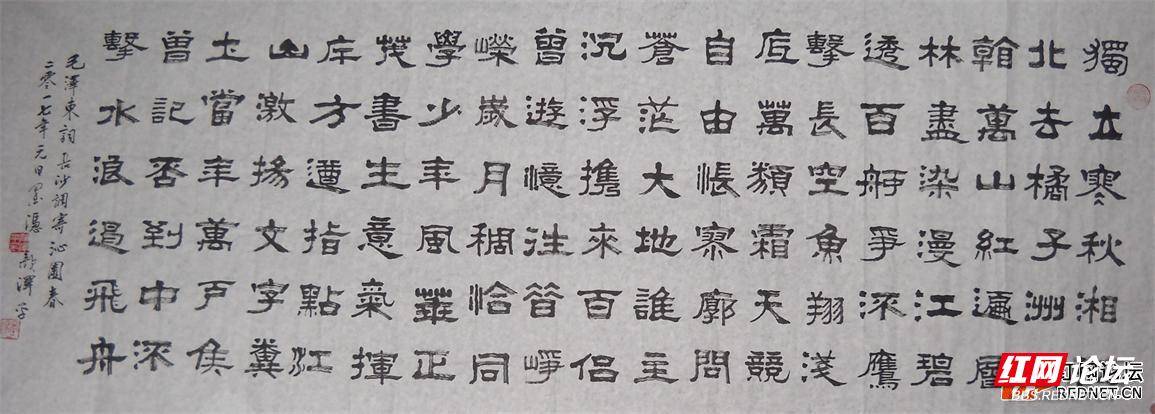 獨立寒秋湘
北去橘子洲
看萬山紅遍層
林盡染漫江碧
透百舸爭流鷹
擊長空魚翔淺
底萬類霜天競
自由悵寥廓問
蒼茫大地誰主
沉浮攜來百侶
曾遊憶往昔崢
嶸歲月稠恰同
學少年風華正
茂書生意氣揮
斥方遒指點江
山激揚文字糞
土當年萬戶侯
曾記否到中流
擊水浪遏飛舟
毛澤東詞長沙調寄沁園春
二零一七年元日
红网论坛
BBS.REDNET.CN